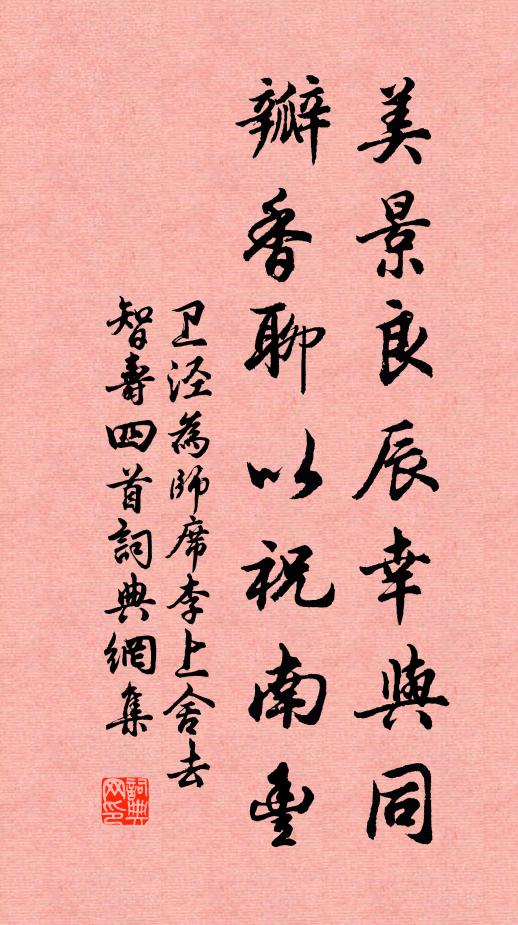 美景良辰幸與同
瓣香聊以祝南豐
卫泾為師席李上舍去
智壽四首詞典網集
詞典
网印